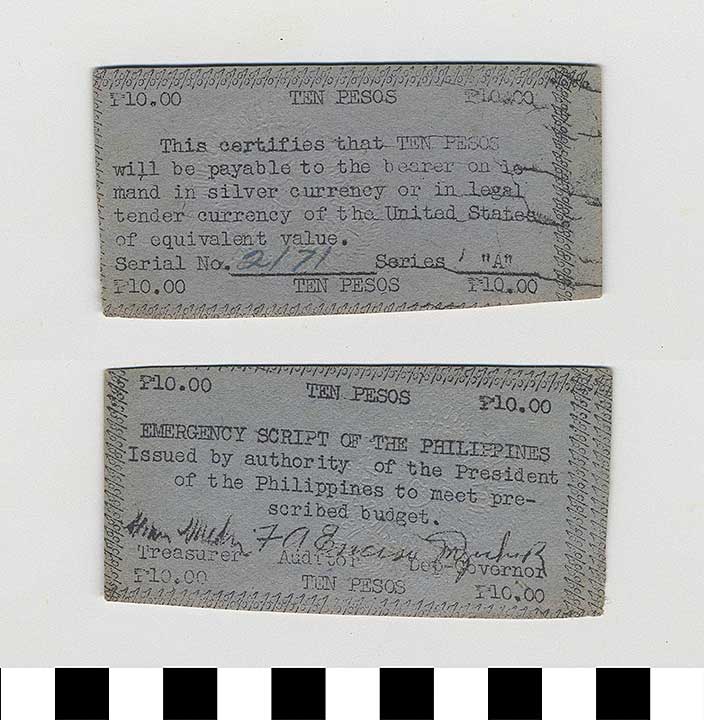 ₱10.00 TEN PESOS ₱10.00
This certifies that TEN PESOS
will be payable to the bearer on de-
mand in silver currency or in legal
tender currency of the United States
of equivalent value.
Serial No. 2171 Series "A"
₱10.00 TEN PESOS ₱10.00
₱10.00 TEN PESOS ₱10.00
EMERGENCY SCRIPT OF THE PHILIPPINES
Issued by authority of the President
of the Philippines to meet pre-
scribed budget.
Treasurer Auditor Dep-Governor
₱10.00 TEN PESOS ₱10.00